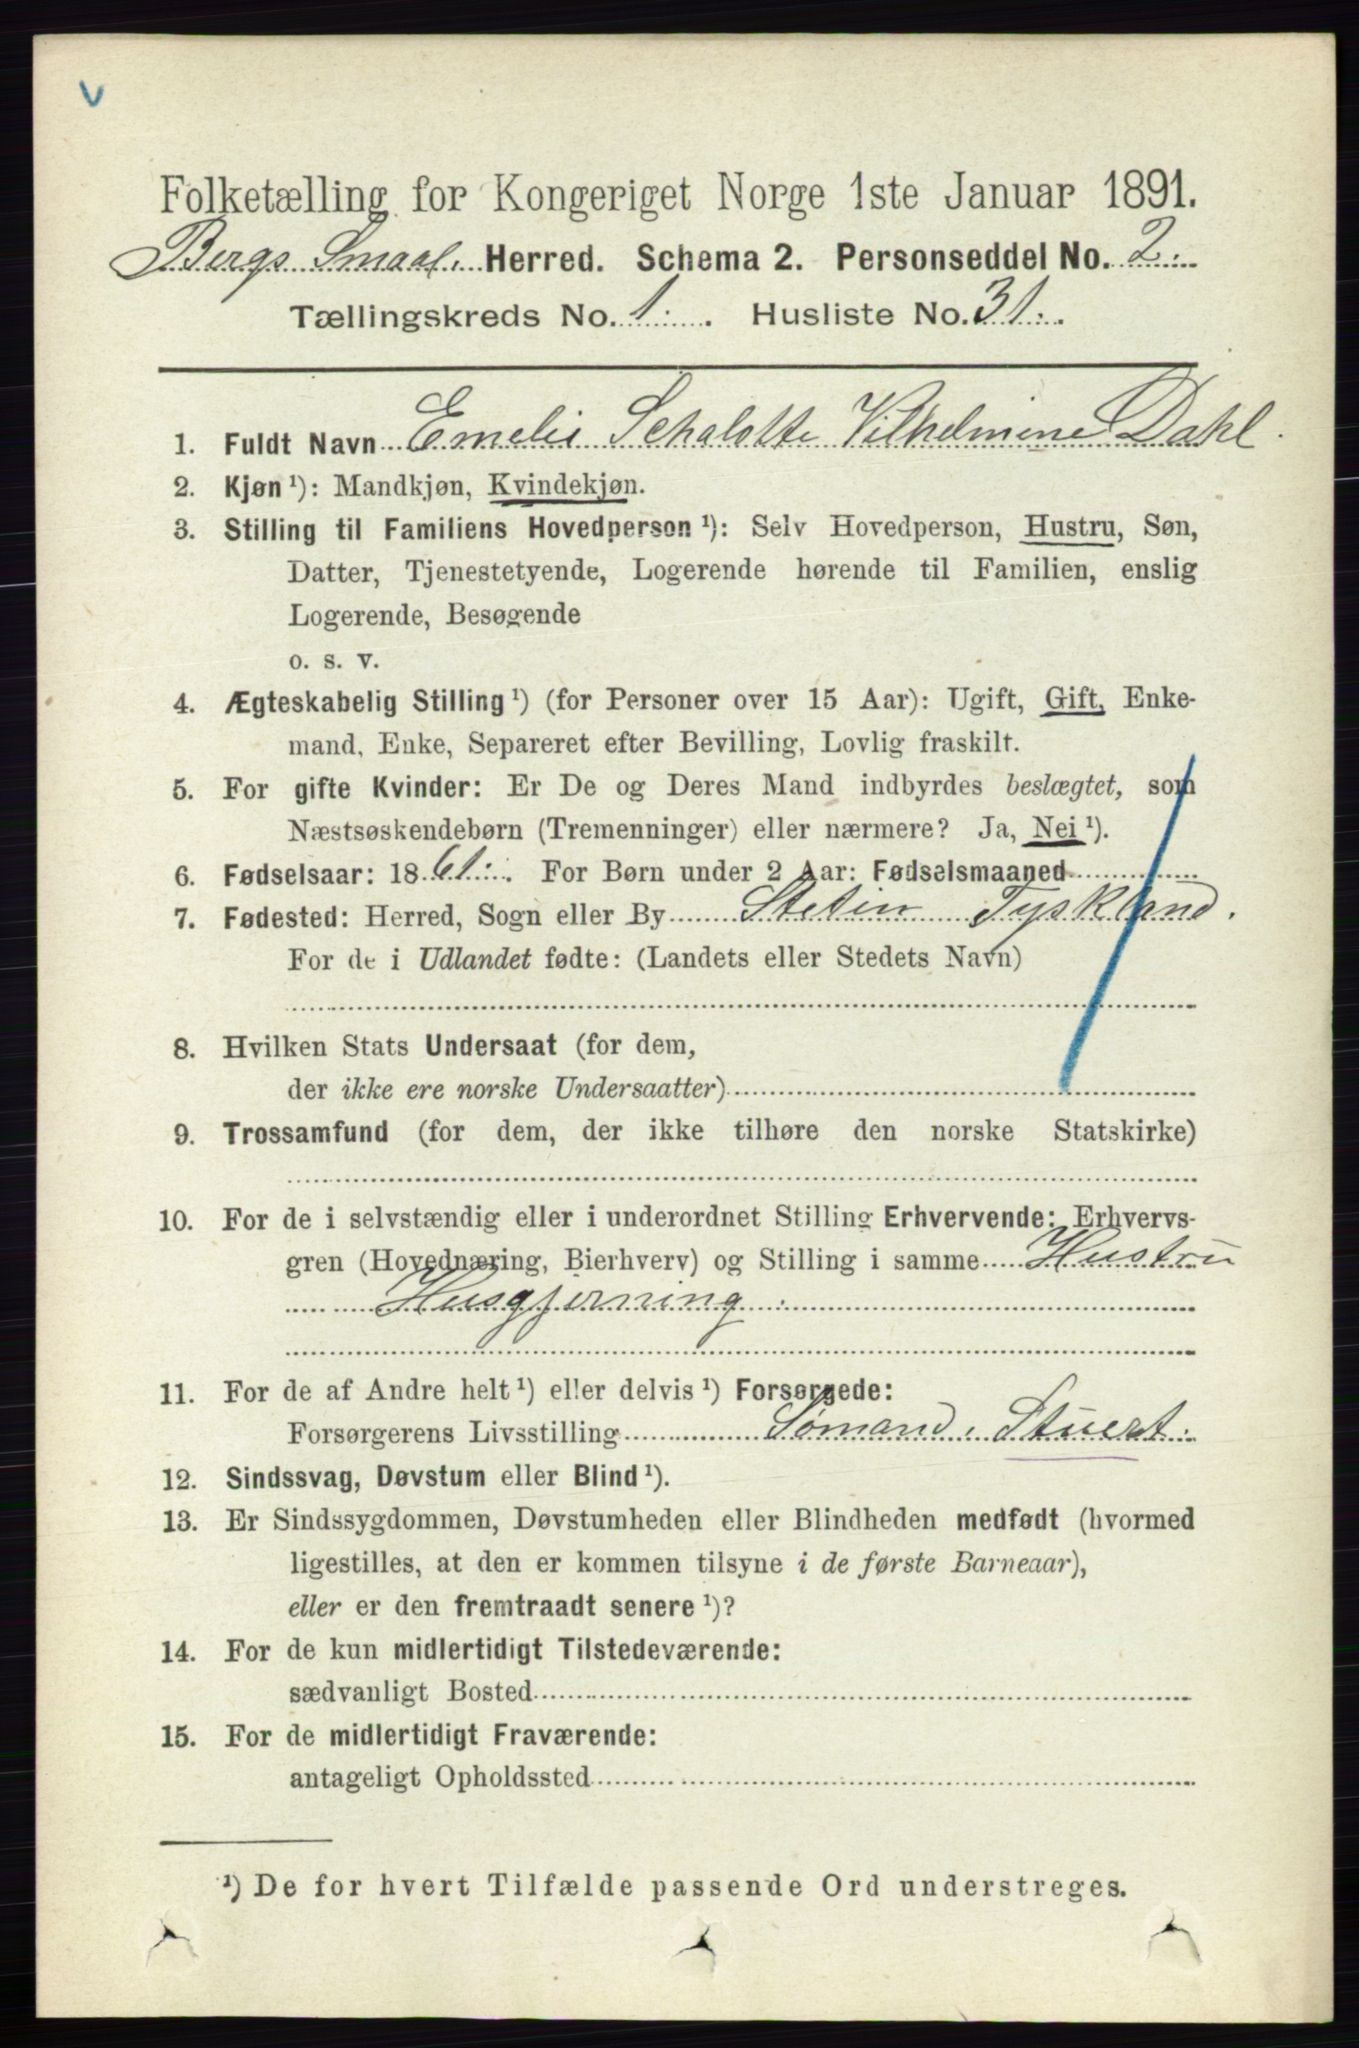 Folketælling for Kongeriget Norge 1ste Januar 1891.
Bergs Smaal. Herred. Schema 2. Personseddel No. 2.
Tællingskreds No. 1. Husliste No. 31.
1. Fuldt Navn Emelie Schalotte Vilhelmine Dahl.
2. Kjøn ¹): Mandkjøn, Kvindekjøn.
3. Stilling til Familiens Hovedperson ¹): Selv Hovedperson, Hustru, Søn,
Datter, Tjenestetyende, Logerende hørende til Familien, enslig
Logerende, Besøgende
o. s. v.
4. Ægteskabelig Stilling ¹) (for Personer over 15 Aar): Ugift, Gift, Enke-
mand, Enke, Separeret efter Bevilling, Lovlig fraskilt.
5. For gifte Kvinder: Er De og Deres Mand indbyrdes beslægtet, som
Næstsøskendebørn (Tremenninger) eller nærmere? Ja, Nei ¹).
6. Fødselsaar: 1861. For Børn under 2 Aar: Fødselsmaaned
7. Fødested: Herred, Sogn eller By Stetin Tyskland.
For de i Udlandet fødte: (Landets eller Stedets Navn)
8. Hvilken Stats Undersaat (for dem,
der ikke ere norske Undersaatter)
9. Trossamfund (for dem, der ikke tilhøre den norske Statskirke)
10. For de i selvstændig eller i underordnet Stilling Erhvervende: Erhvervs-
gren (Hovednæring, Bierhverv) og Stilling i samme Hustru
Husgjerning.
11. For de af Andre helt ¹) eller delvis ¹) Forsørgede:
Forsørgerens Livsstilling Sømand, Stuert.
12. Sindssvag, Døvstum eller Blind ¹).
13. Er Sindssygdommen, Døvstumheden eller Blindheden medfødt (hvormed
ligestilles, at den er kommen tilsyne i de første Barneaar),
eller er den fremtraadt senere ¹)?
14. For de kun midlertidigt Tilstedeværende:
sædvanligt Bosted
15. For de midlertidigt Fraværende:
antageligt Opholdssted
¹) De for hvert Tilfælde passende Ord understreges.